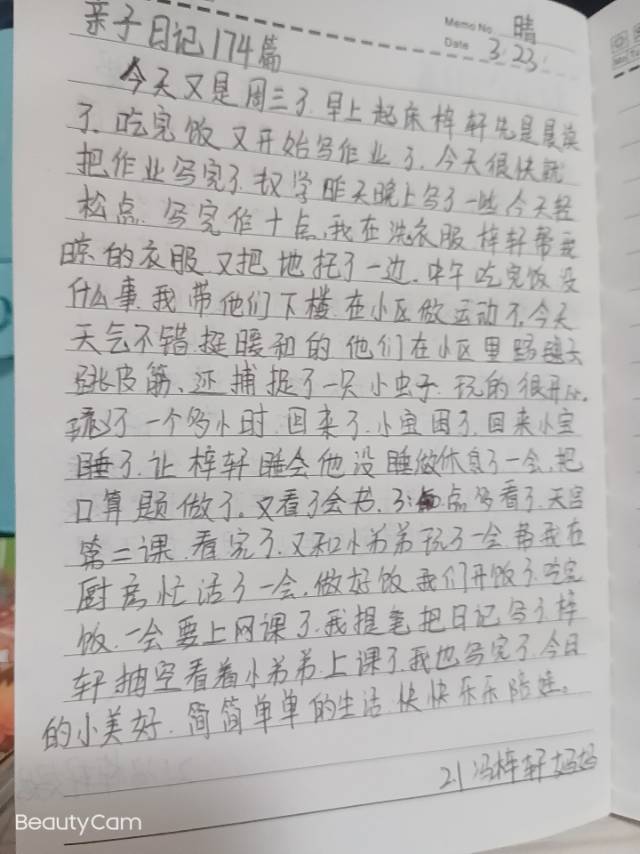 Memo No. 晴
亲子日记174篇
Date 3.23.
今天又是周三了.早上起床梓轩先是晨读
了.吃完饭又开始写作业了.今天很快就
把作业写完了.数学昨天晚上写了一些今天轻
松点.写完作十点,我在洗衣服梓轩帮我
晾的衣服又把地托了一边.中午吃完饭没
什么事.我带他们下楼.在小区做运动了.今天
天气不错.挺暖和的他们在小区里
跳皮筋、还捕捉了一只小虫子.玩的很开心.
玩了一个多小时.回来了.小宝困了.回来小宝
睡了.让梓轩睡会他没睡做休息了一会.把
口算题做了.又看了会书.3:点多看了.天宫
第二课.看完了.又和小弟弟玩了一会.帮我在
厨房忙活了一会.做好饭.我们开饭了.吃完
饭.一会要上网课了.我提笔把日记写了梓
轩抽空看着小弟弟.上课了.我也写完了.今日
的小美好.简简单单的生活快快乐乐陪娃。
21冯梓轩妈妈
BeautyCam